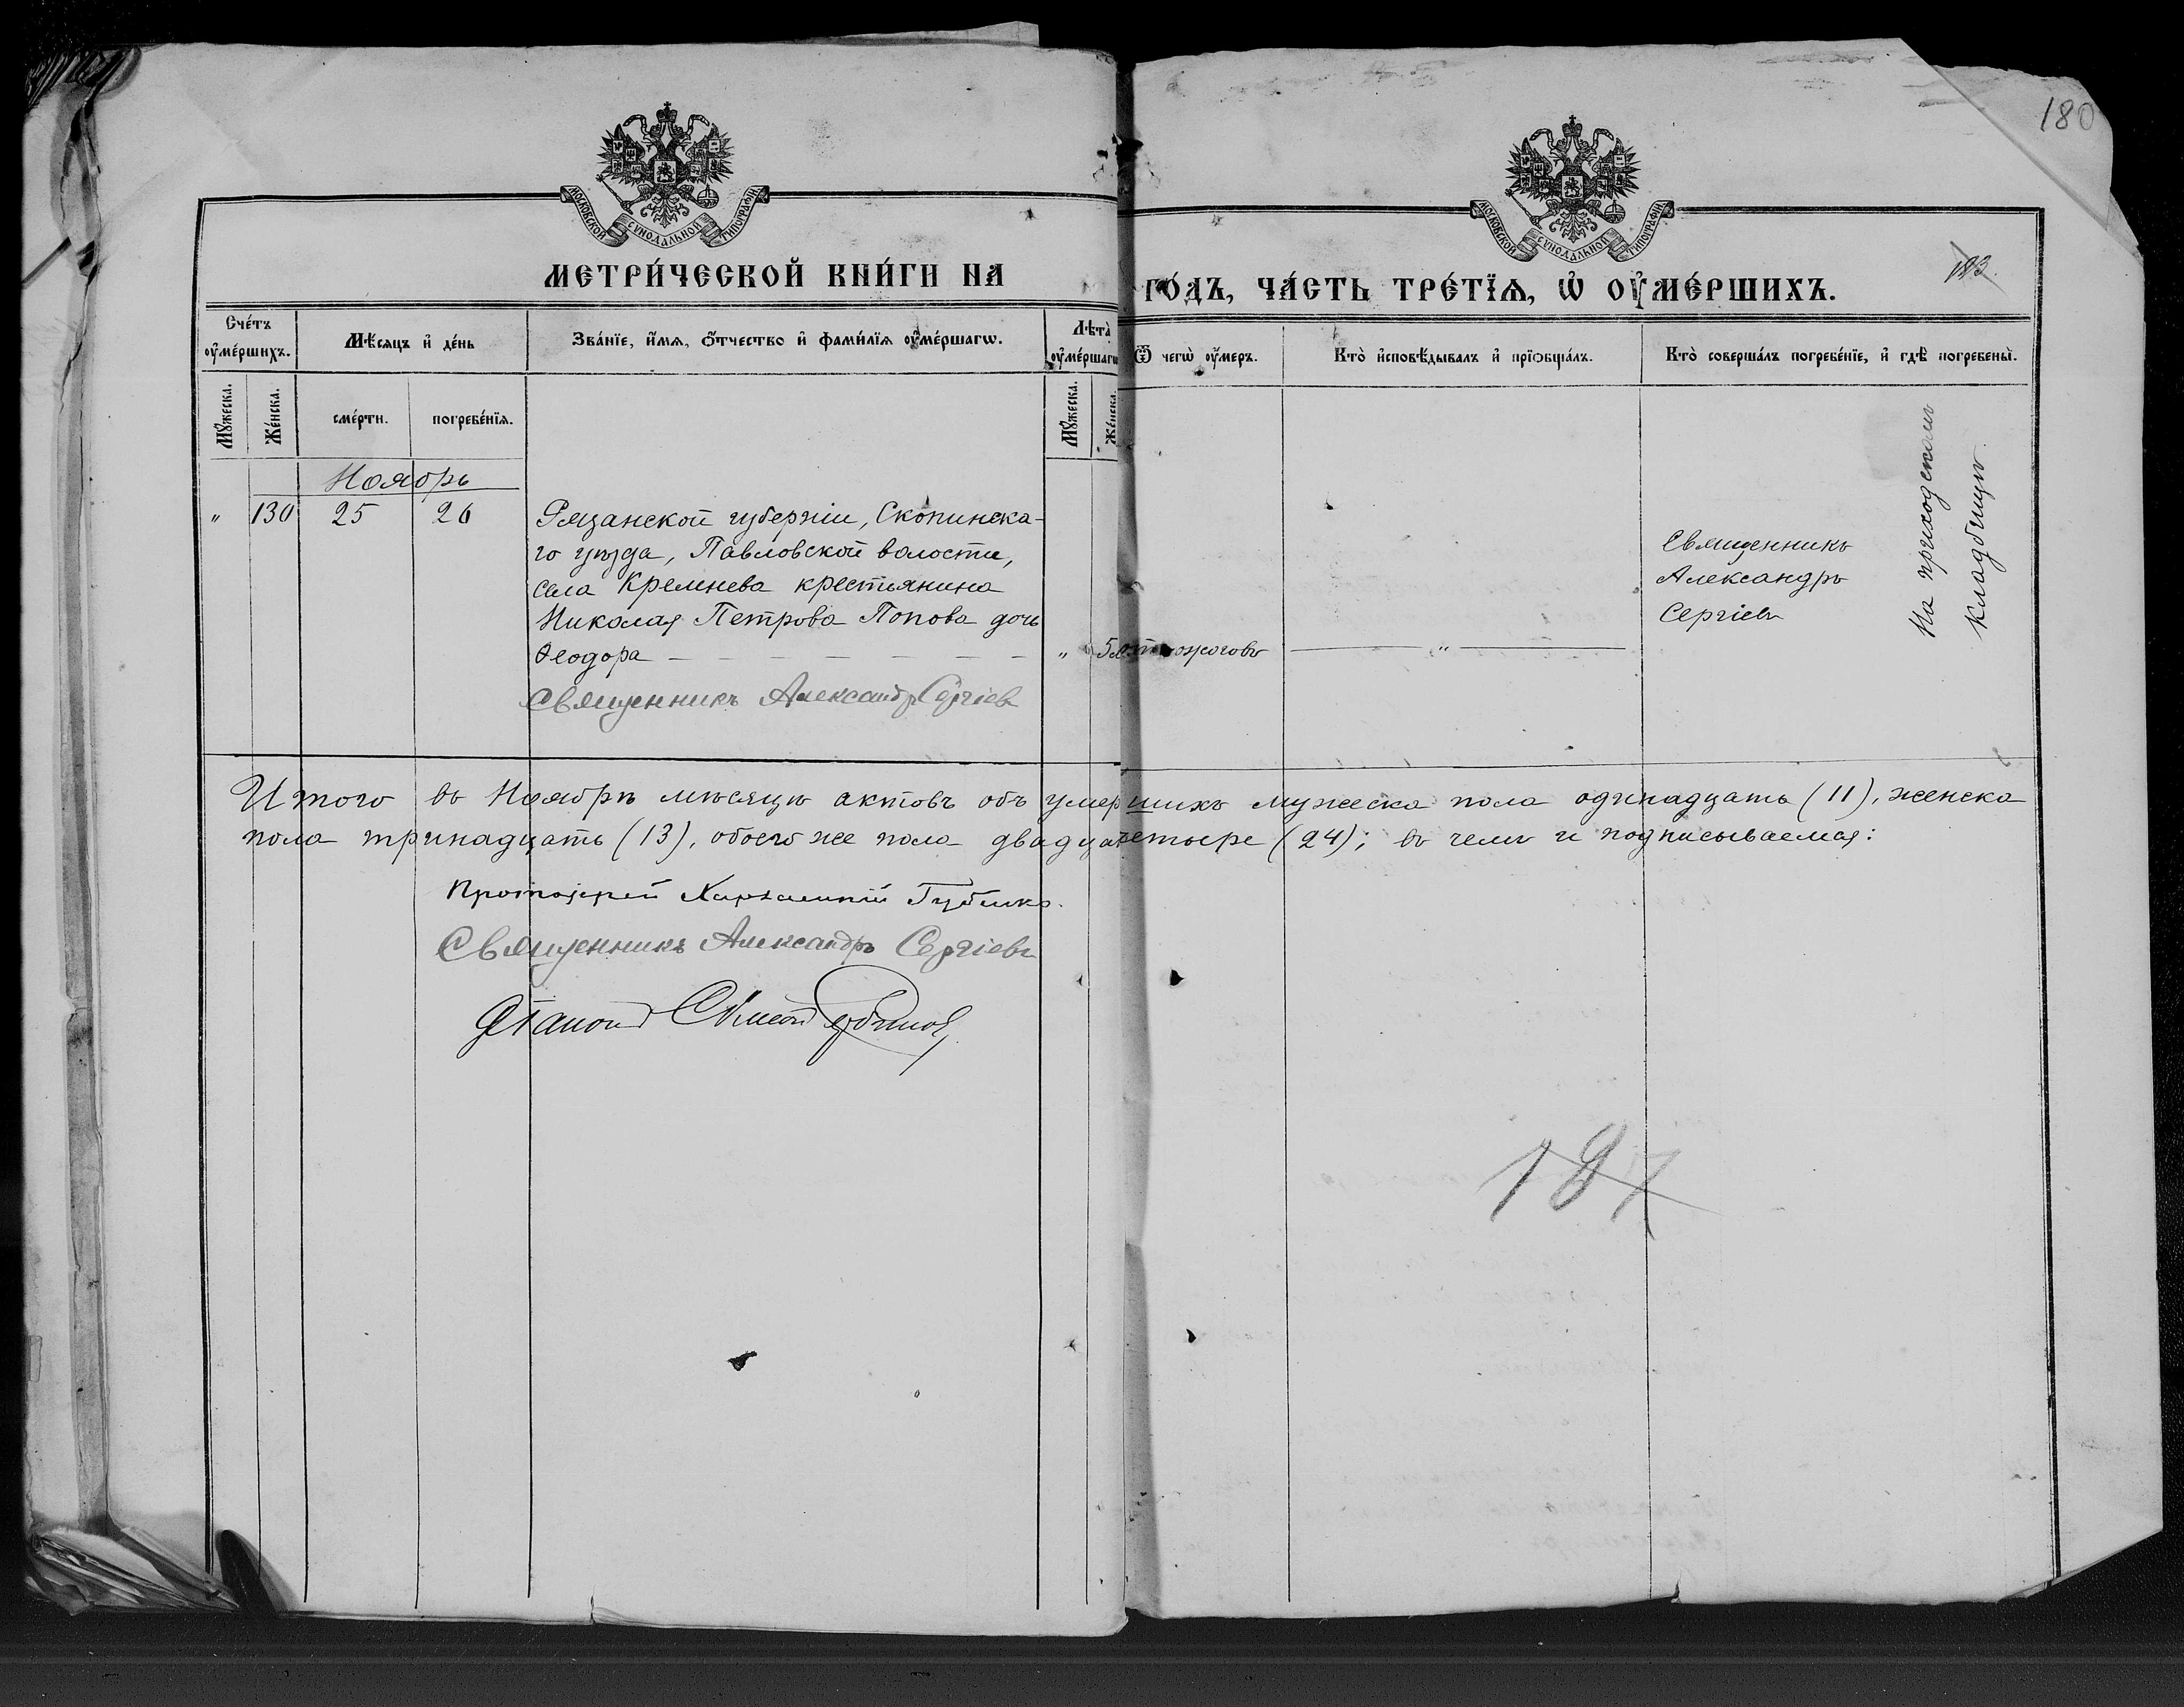 180
МОСКОВСКОЙ СѴНОДАЛЬНОЙ ТИПОГРАФІИ
МОСКОВСКОЙ СѴНОДАЛЬНОЙ ТИПОГРАФІИ
МЕТРИ́ЧЕСКОЙ КНИ́ГИ НА ГО́ДЪ, ЧА́СТЬ ТРЕ́ТЇѦ, Ѡ҆ ОУ҆МЕ́РШИХЪ.
183.
Сче́тъ оу҆ме́ршихъ.
Мѣ́сѧцъ и҆ де́нь
Зва́нїе, и҆́мѧ, ѻ҆́тчество и҆ фами́лїѧ оу҆ме́ршагѡ.
Лѣ́та оу҆ме́ршагѡ
Ѿ чегѡ̀ оу҆́меръ.
Кто̀ и҆сповѣ́дывалъ и҆ прїѻбща́лъ.
Кто̀ соверша́лъ погребе́нїе, и҆ гдѣ̀ погребены̀.
Мꙋ́жеска.
Же́нска.
сме́рти.
погребе́нїѧ.
Мꙋ́жеска.
Же́нска.
Ноябрь
" 130 25 26
Рязанской губерніи, Скопинска-
го уѣзда, Павловской волости,
села Кремнева крестьянина
Николая Петрова Попова дочь
Ѳеодора — — — — — — — " 5 отъ ожоговъ — " —
Священникъ Александръ Сергіевъ
Священникъ
Александръ
Сергіевъ
На приходскомъ
кладбищѣ.
Итого въ Ноябрѣ мѣсяцѣ актовъ объ умершихъ мужеска пола одинадцать (11), женска
пола тринадцать (13), обоего же пола двадцать четыре (24); въ чемъ и подписываемся:
Протоіерей
Священникъ Александръ Сергіевъ
Діаконъ Сѵмеонъ
187